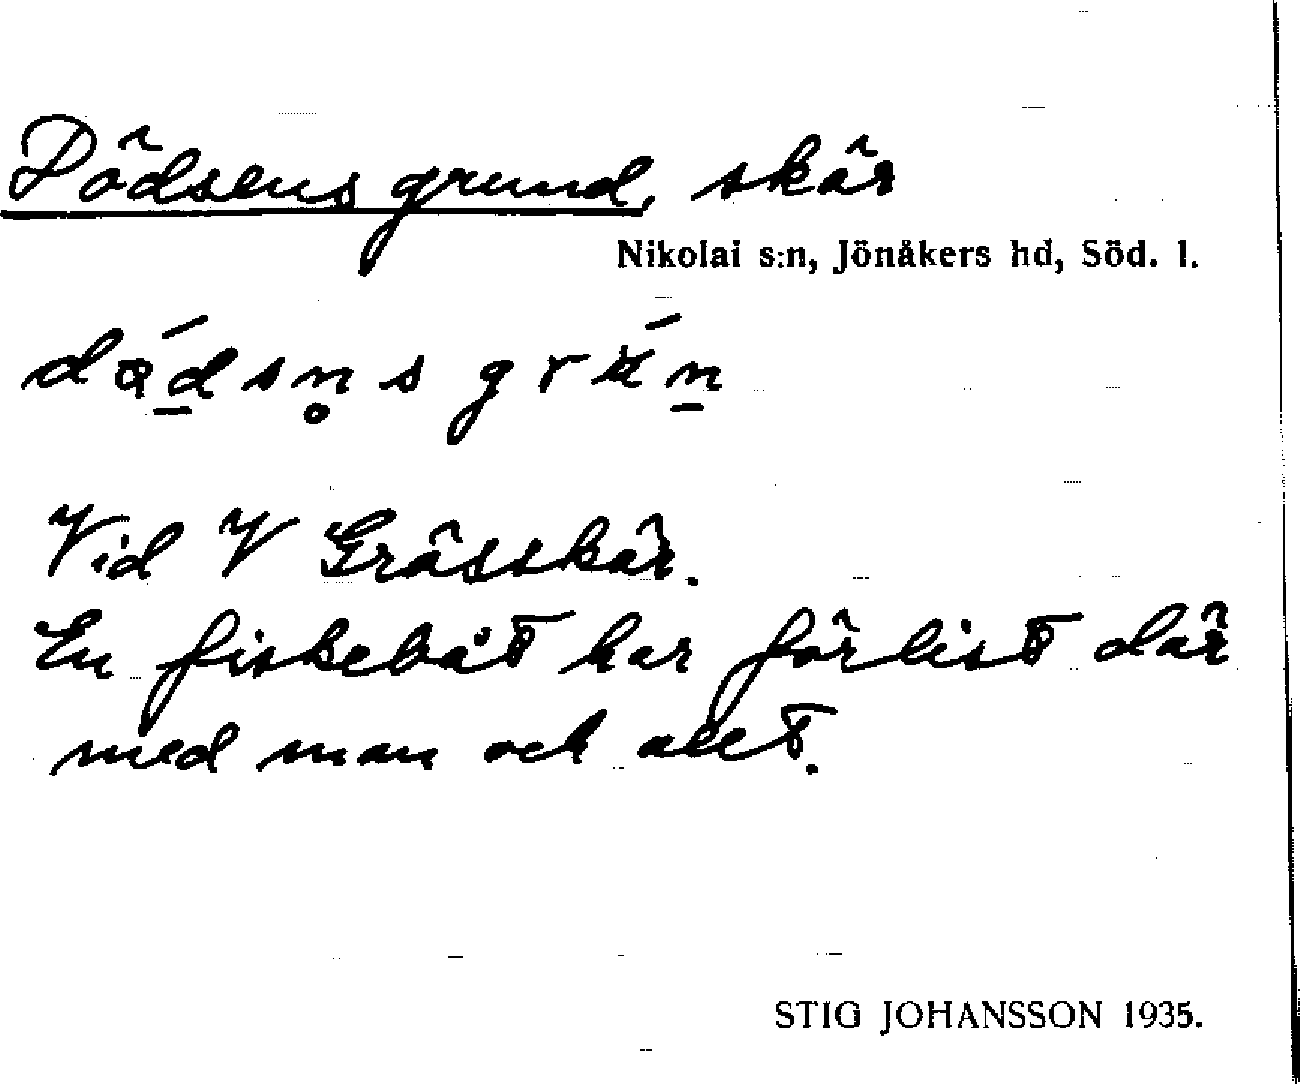 Dödsens grund, skär
Nikolai s:n, Jönåkers hd, Söd. l.
Vid V Grässkär.
En fiskebåt har förlist där
med man och allt.
STIG JOHANSSON 1935.